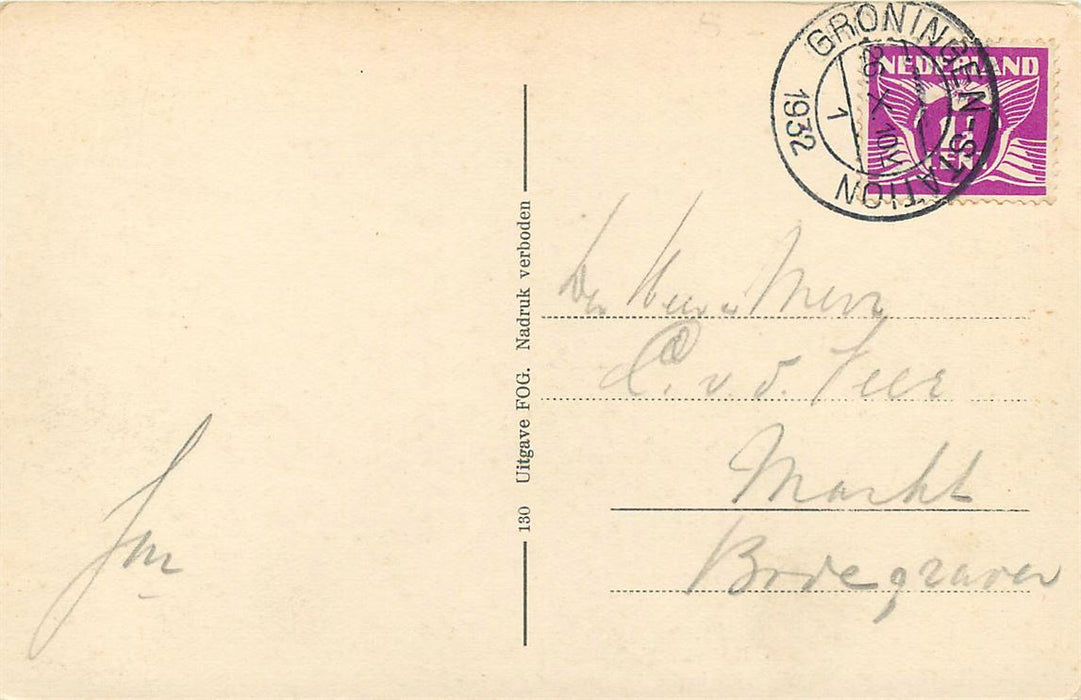 GRONINGEN-STATION
X. 10V
1
1932
NEDERLAND
1½
130 Uitgave FOG. Nadruk verboden
Den Heer & Mevr
C. v. d. Veer
Markt
Bodegraven
Jan